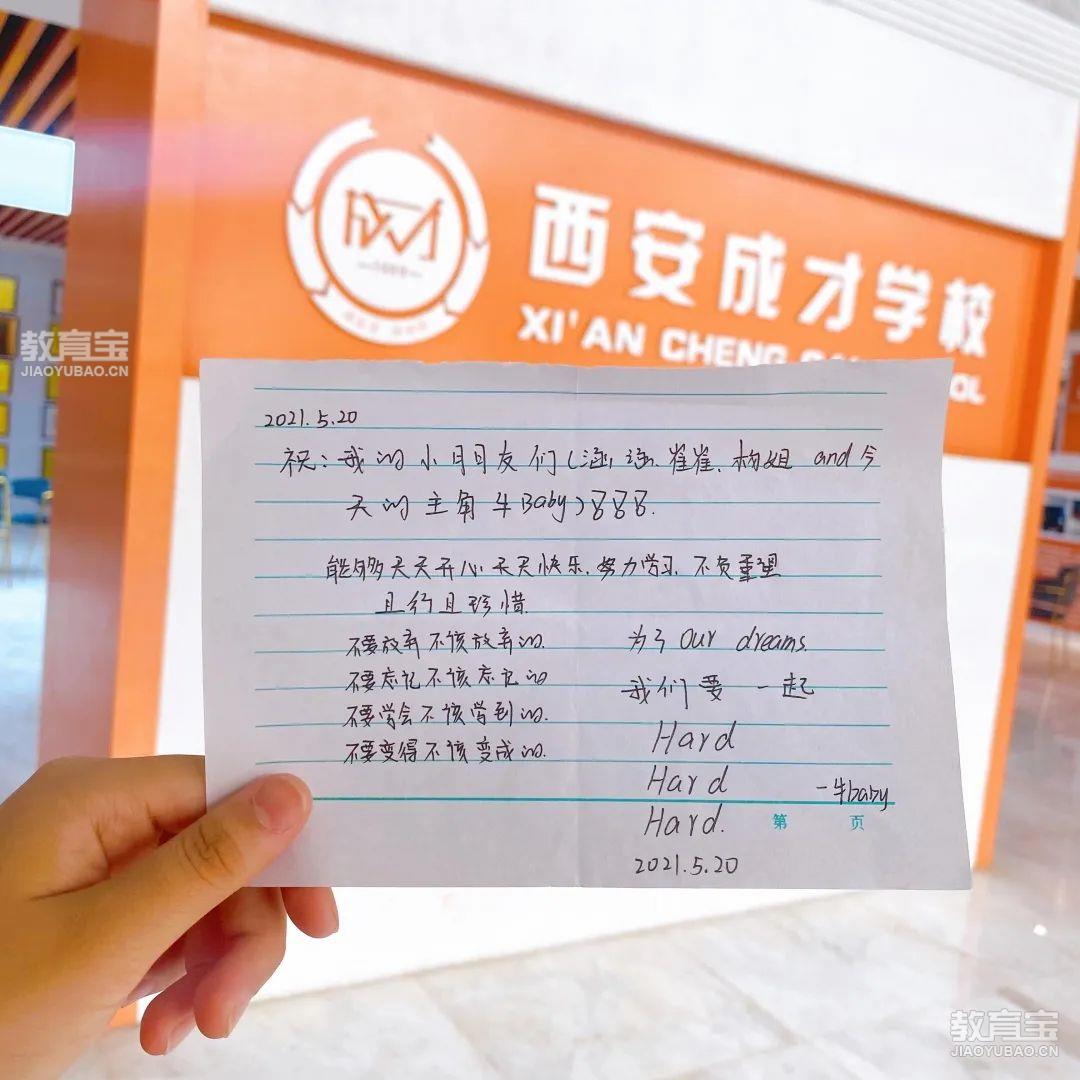 西安成才学校
XI'AN CHENG
OOL
教育宝
JIAOYUBAO.CN
2021.5.20
祝:我的小朋友们(涵涵、崔崔、杨姐 and 今
天的主角牛Baby)
能够天天开心、天天快乐、努力学习、不负重望
且行且珍惜
不要放弃不该放弃的.
不要忘记不该忘记的
不要学会不该学到的.
不要变得不该变成的.
为了 our dreams.
我们要一起
Hard
Hard
Hard.
一牛baby
第 页
2021.5.20
教育宝
JIAOYUBAO.CN